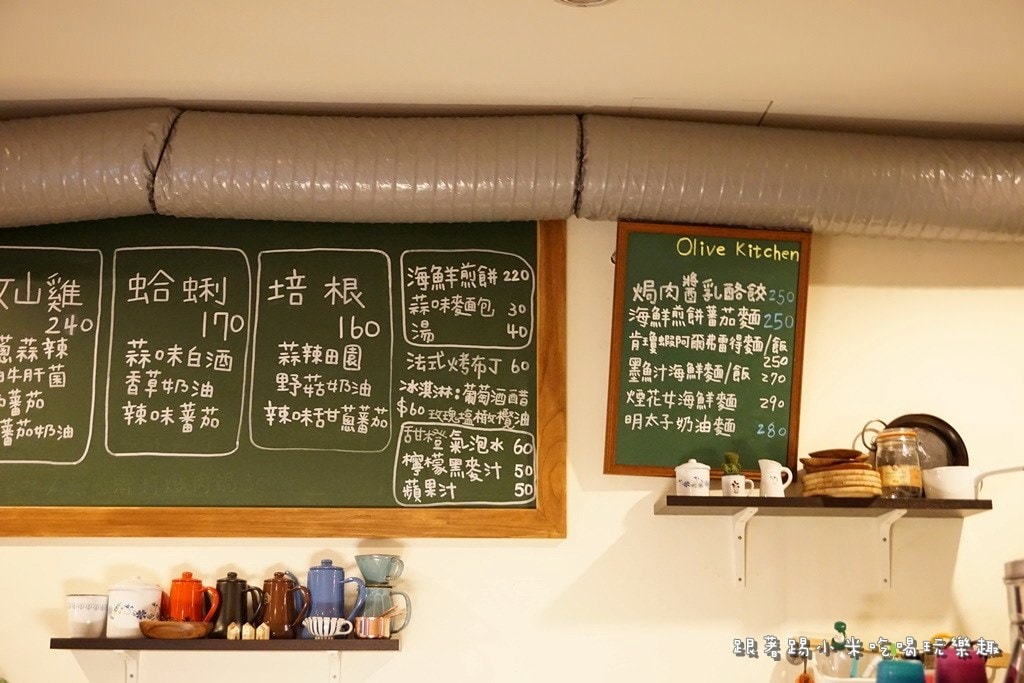 文山雞
240
蔥蒜辣
牛肝菌
番茄
蕃茄奶油
蛤蜊
170
蒜味白酒
香草奶油
辣味蕃茄
培根
160
蒜辣田園
野菇奶油
辣味甜蔥蕃茄
海鮮煎餅 220
蒜味麵包 30
湯 40
法式烤布丁 60
冰淇淋:葡萄酒醋
$60 玫瑰塩橄欖油
甜橙氣泡水 60
檸檬黑麥汁 50
蘋果汁 50
Olive Kitchen
焗肉醬乳酪餃 250
海鮮煎餅蕃茄麵 250
肯瓊蝦阿爾弗雷得麵/飯
250
墨魚汁海鮮麵/飯 270
煙花女海鮮麵 290
明太子奶油麵 280
跟著踢小米吃喝玩樂趣